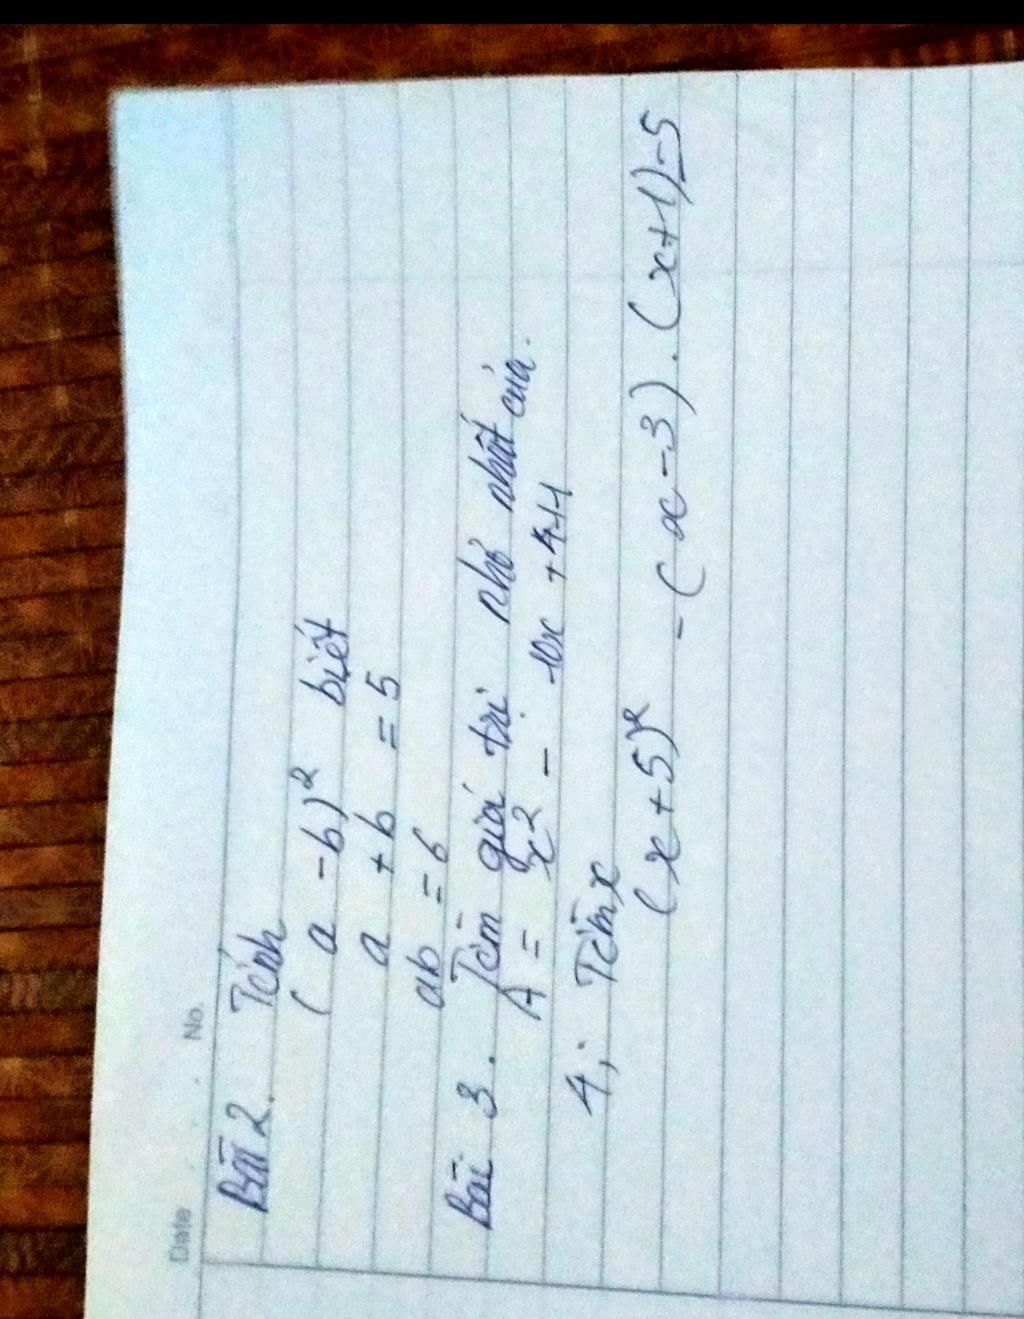 Date No.
Bài 2. Tính
(a - b)² biết
a + b = 5
ab = 6
Bài 3. Tìm giá trị nhỏ nhất của.
A = x² - 10x +
4; Tìm x
(x + 5)² - (x - 3).(x + 1) = 5